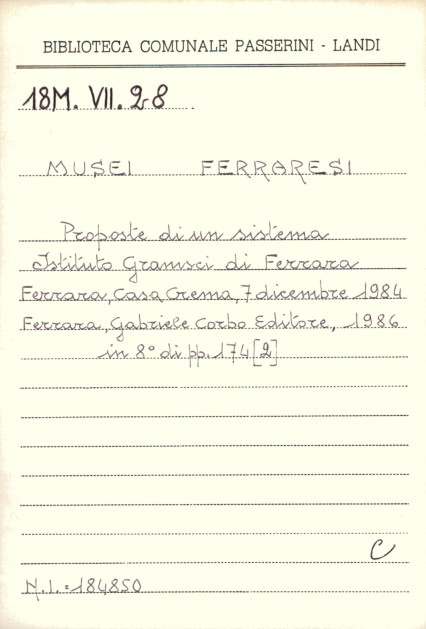 BIBLIOTECA COMUNALE PASSERINI - LANDI
18M. VII. 28
MUSEI FERRARESI
Proposte di un sistema
Istituto Gramsci di Ferrara
Ferrara, Casa Crema, 7 dicembre 1984
Ferrara, Gabriele Corbo Editore, 1986
in 8° di pp. 174 [2]
C
N.I. = 184850